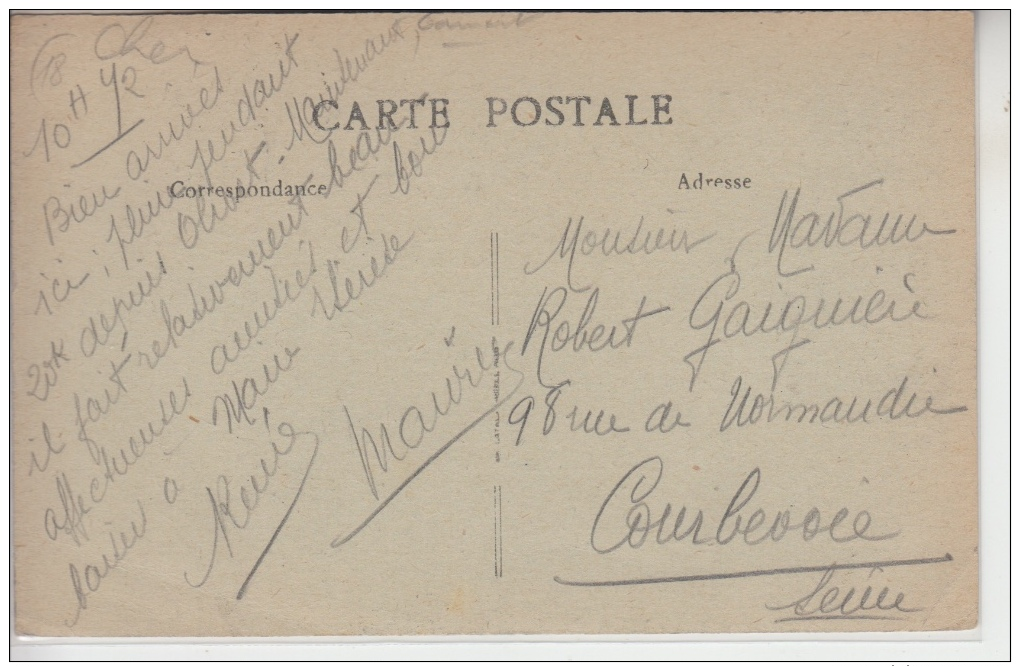 CARTE POSTALE
Correspondance
Adresse
18 Cher
10H 1/2
Bien arrivés
ici, pluie pendant
20k depuis Olivet. Maintenant,
il fait relativement beau
affectueuses amitiés et bon
baiser a Marie Thérèse
René
Maurice
Monsieur, Madame
Robert Gaignière
98 rue de Normandie
Courbevoie
Seine